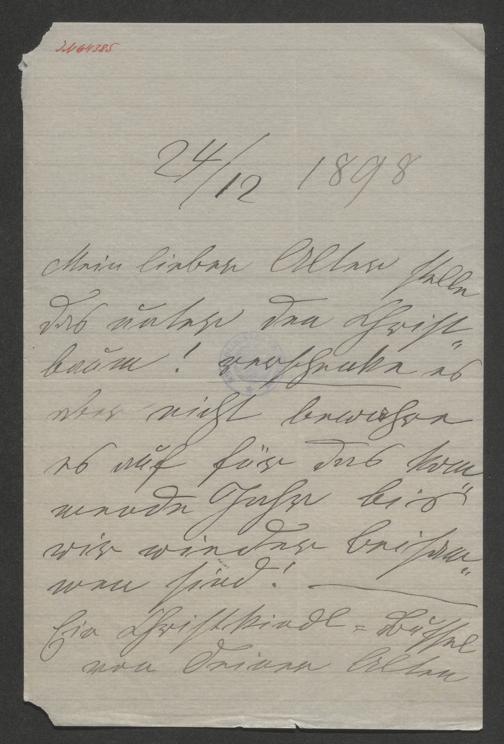 I.N 64385
24/12 1898
Mein lieber Alter stelle
das unter den Christ„
baum! verschenke es
aber nicht bewahre
es auf für das kom„
mende Jahr bis
wir wieder beisam„
men sind!
Ein Christkindl = Bußel
von Deiner Alten